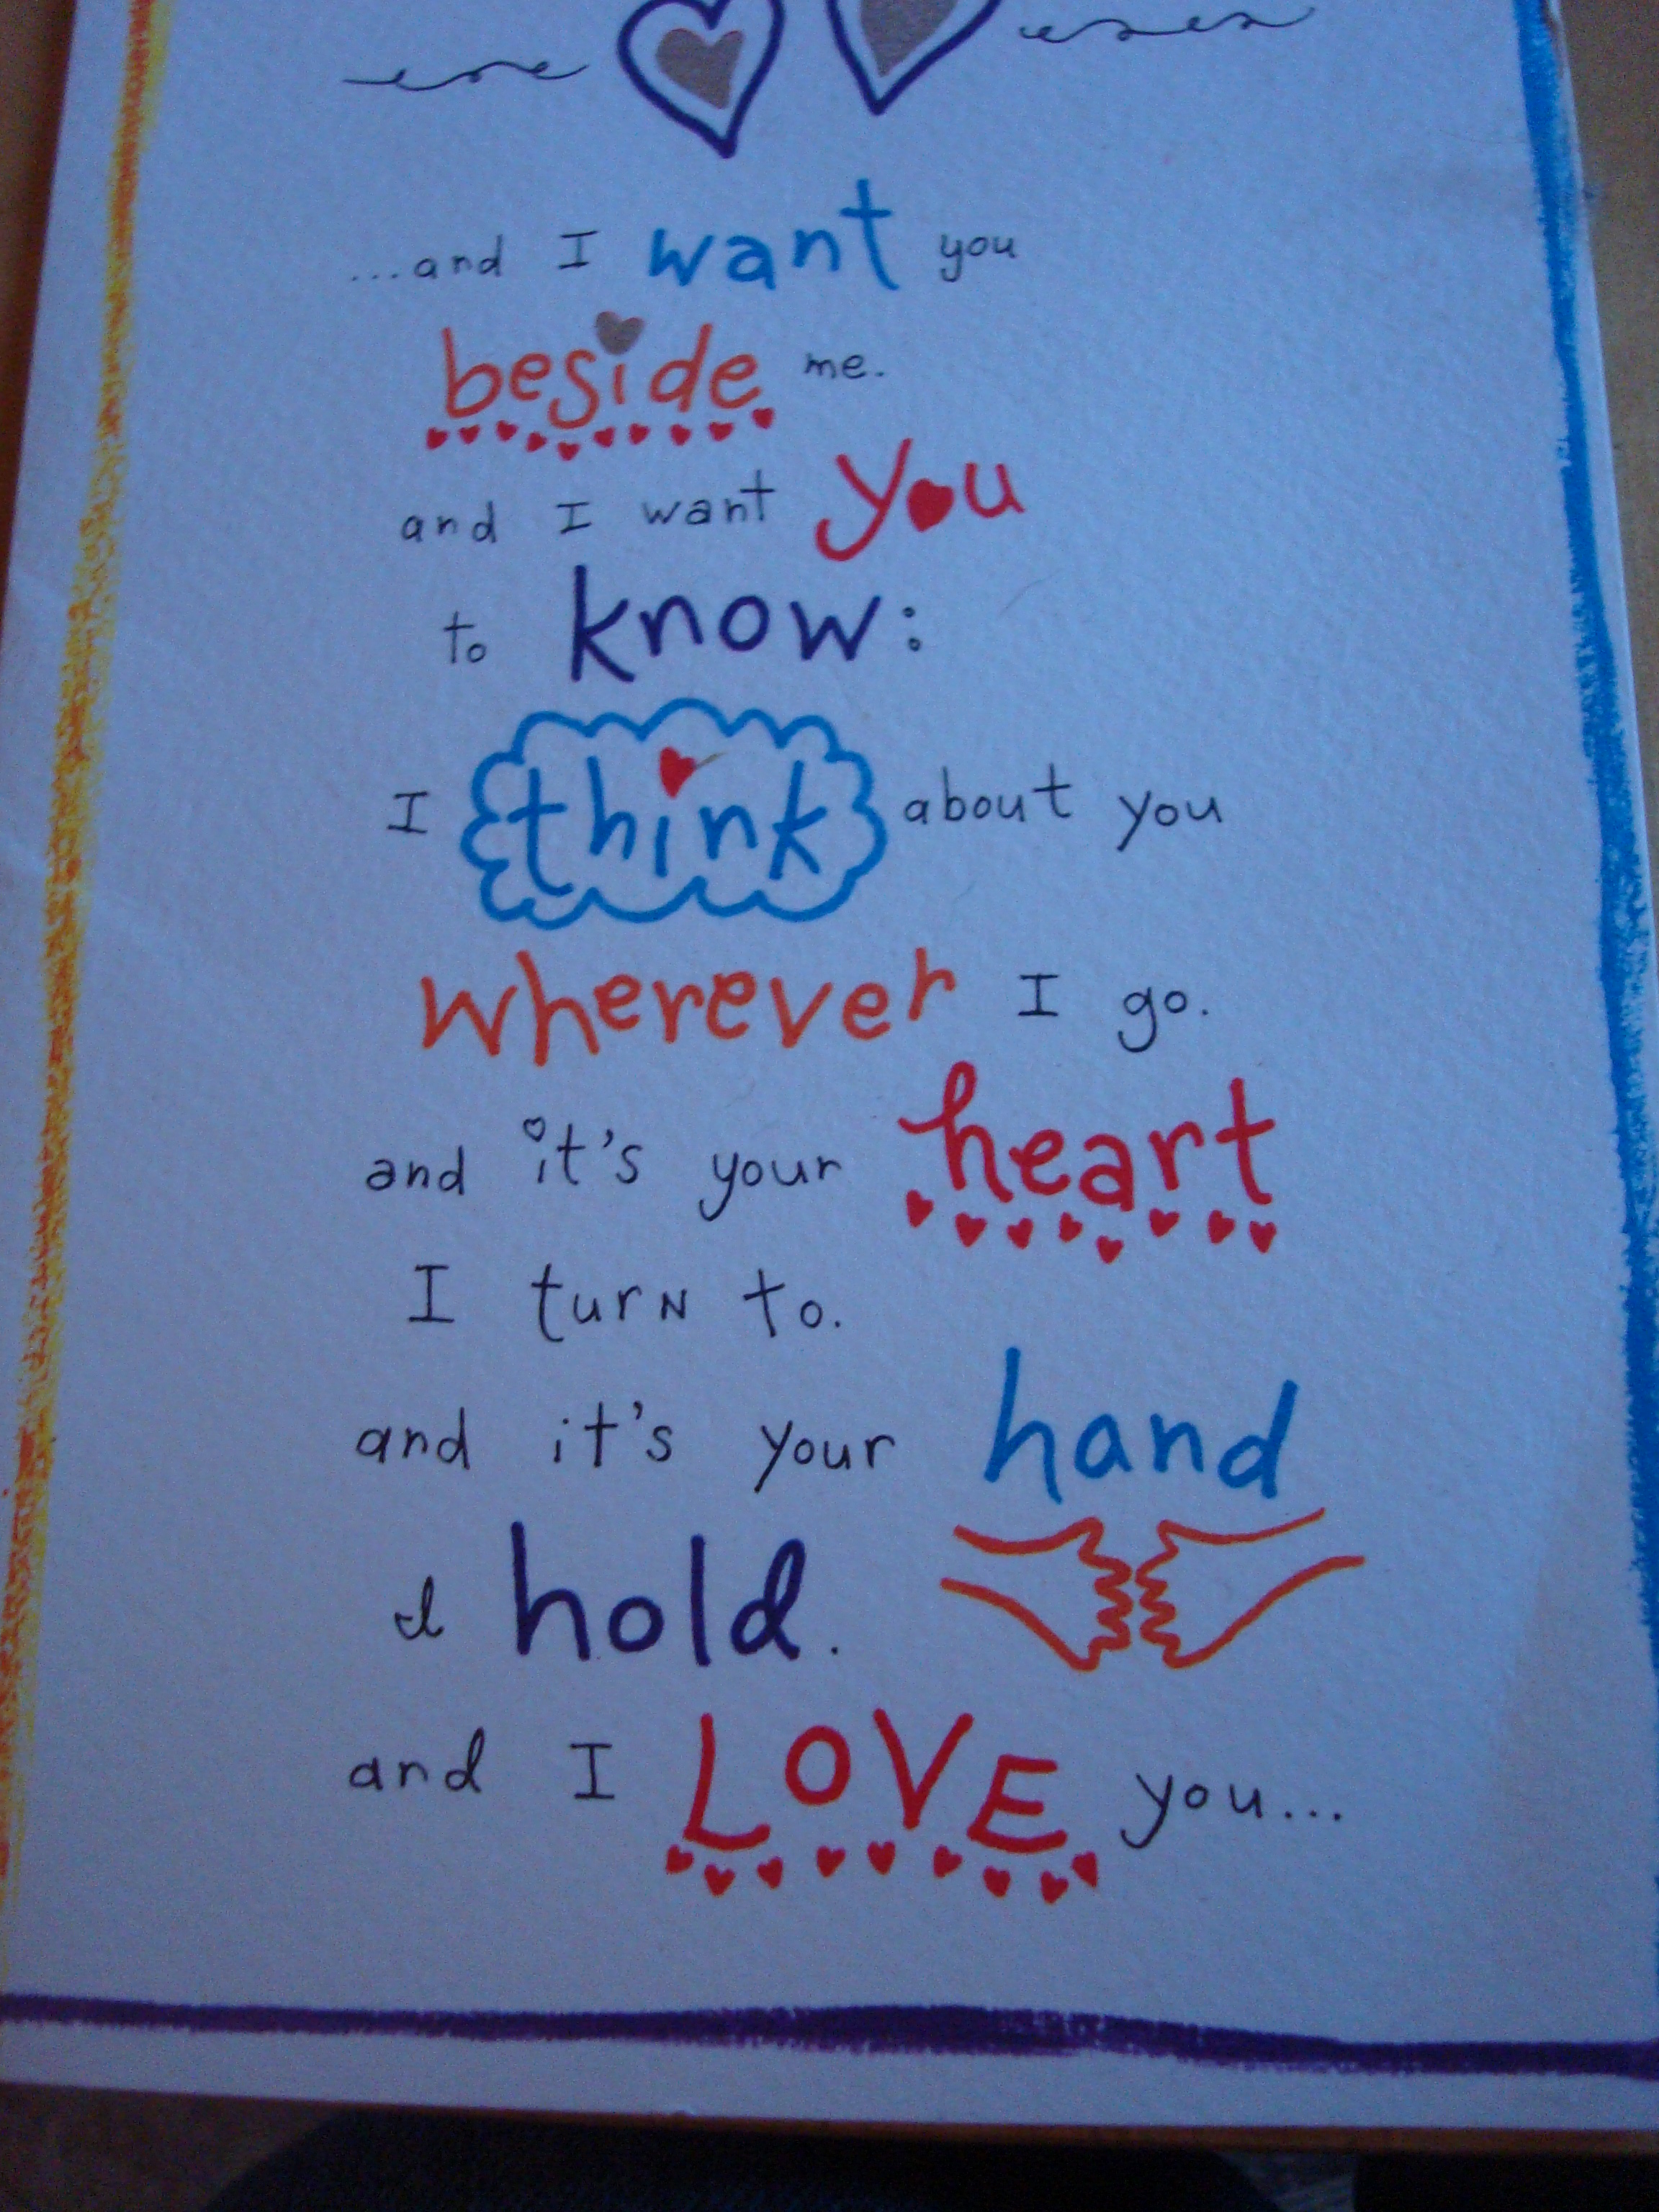 ...and I want you
beside me.
and I want you
to know:
I think about you
wherever I go.
and it's your heart
I turN to.
and it's your hand
I hold.
and I LOVE you...